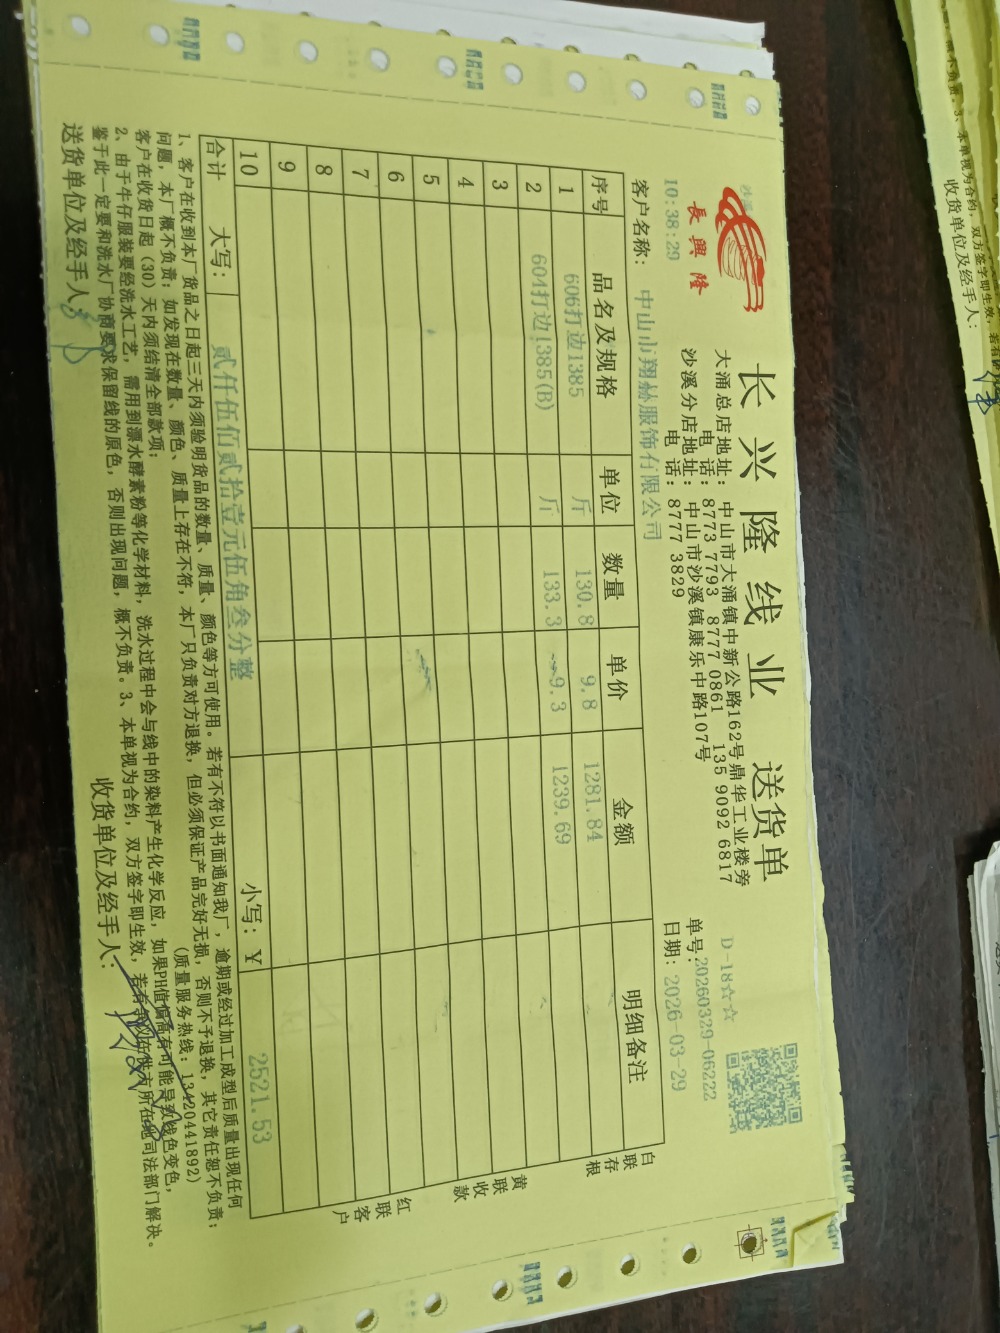 沙溪
長興隆
长兴隆线业 送货单
大涌总店地址: 中山市大涌镇中新公路162号鼎华工业楼旁
电 话: 8773 7793 8777 0861 135 9092 6817
沙溪分店地址: 中山市沙溪镇康乐中路107号
电 话: 8777 3829
D-18☆☆
单号: 20260329-06222
10:38:29
日期: 2026-03-29
客户名称: 中山市翔赫服饰有限公司
序号 品名及规格 单位 数量 单价 金额 明细备注
1 606打边1385 斤 130.8 9.8 1281.84
2 604打边1385(B) 斤 133.3 9.3 1239.69
3
4
5
6
7
8
9
10
合计 大写: 贰仟伍佰贰拾壹元伍角叁分整 小写: ¥ 2521.53
白联存根
黄联收款
红联客户
1、客户在收到本厂货品之日起三天内须验明货品的数量、质量、颜色等方可使用。若有不符以书面通知我厂，逾期或经过加工成型后质量出现任何
问题，本厂概不负责；如发现在数量、颜色、质量上存在不符，本厂只负责对方退换，但必须保证产品完好无损，否则不予退换，其它责任恕不负责；
客户在收货日起（30）天内须结清全部款项； （质量服务热线：13420441892）
2、由于牛仔服装要经洗水工艺，需用到漂水酵素粉等化学材料，洗水过程中会与线中的染料产生化学反应，如果PH值偏高有可能导致线色变色，
鉴于此一定要和洗水厂协商要求保留线的原色，否则出现问题，概不负责。3、本单视为合约，双方签字即生效，若有争议在供方所在地司法部门解决。
送货单位及经手人: 收货单位及经手人:
概不负责。3、本单视为合约，双方签字即生效，若有
收货单位及经手人: